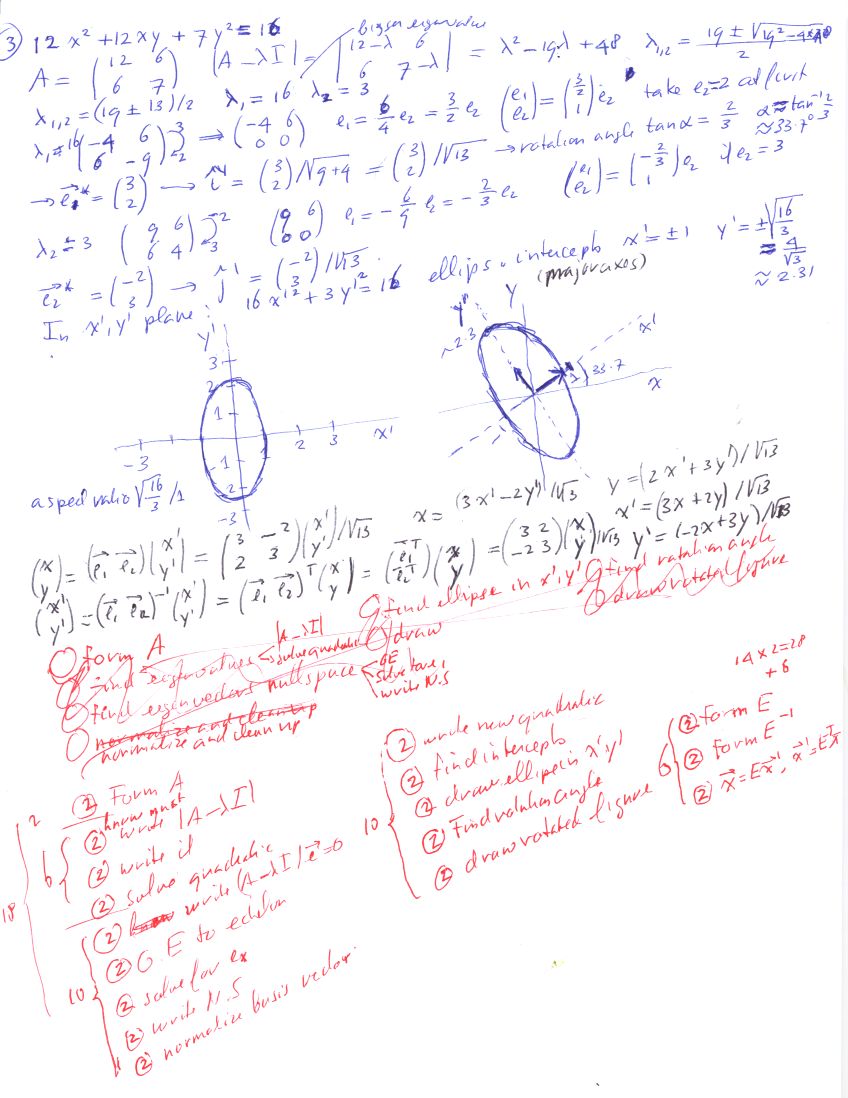 ③ 12x² + 12xy + 7y² = 16 bigger eigenvalue
A = (12 6; 6 7) |A - λI| = |12-λ 6; 6 7-λ| = λ² - 19λ + 48 λ₁,₂ = (19 ± √19² - 4×48)/2
λ₁,₂ = (19 ± 13)/2 λ₁ = 16 λ₂ = 3
λ₁ = 16 (-4 6; 6 -9) 3 2 ⇒ (-4 6; 0 0) e₁ = 6/4 e₂ = 3/2 e₂ (e₁; e₂) = (3/2; 1) e₂ take e₂ = 2
→ e₁* = (3; 2) → î' = (3; 2)/√9+4 = (3; 2)/√13 → rotation angle tan α = 2/3 α = tan⁻¹ 2/3 ≈ 33.7°
λ₂ = 3 (9 6; 6 4) -2 3 (9 6; 0 0) e₁ = -6/9 e₂ = -2/3 e₂ (e₁; e₂) = (-2/3; 1) e₂ if e₂ = 3
e₂* = (-2; 3) → ĵ' = (-2; 3)/√13 ellips. intercepts x' = ±1 y' = ±√16/3 = 4/√3 ≈ 2.31
(major axes)
In x', y' plane: 16x'² + 3y'² = 16
y'
3
2
1
-3
2 3 x'
-1
-2
-3
aspect ratio √16/3 /1
y' y
~2.3
x'
33.7
x
x = (3x' - 2y')/√13 y = (2x' + 3y')/√13
(x; y) = (e₁ e₂)(x'; y') = (3 -2; 2 3)(x'; y')/√13 x' = (3x + 2y)/√13
(x'; y') = (e₁ e₂)⁻¹(x; y) = (e₁ e₂)ᵀ(x; y) = (e₁ᵀ; e₂ᵀ)(x; y) = (3 2; -2 3)(x; y)/√13 y' = (-2x + 3y)/√13
form A
find eigenvalues |A - λI| solve quadratic
find eigenvectors nullspace GE solve write N.S
normalize and cleanup
normalize and clean up
find ellipse in x', y'
draw
find rotation angle
draw rotated figure
14 × 2 = 28
+ 6
2 ② Form A
② write |A - λI|
6 ② write it
② solve quadratic
18
② write (A - λI) e = 0
② G E to echelon
10 ② solve for
② write N.S
② normalize basis vector
② write new quadratic
② find intercepts
10 ② draw ellipse in x' y'
② Find rotation angle
② draw rotated figure
② form E
6 ② form E⁻¹
② x = Ex', x' = Eᵀx